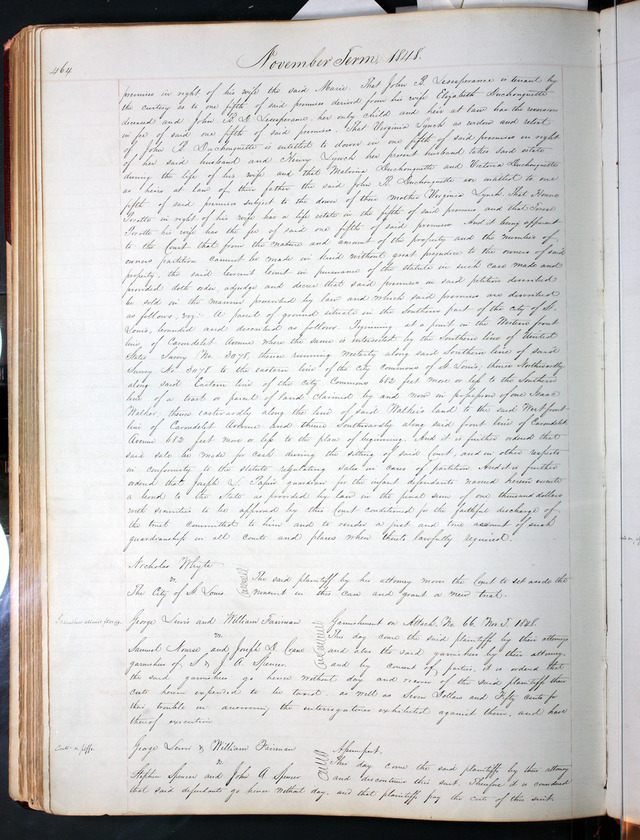 464
November Term 1848.
premises in right of his wife the said Marie. That John B. Lesperance is tenant by
the curtesy as to one fifth of said premises derived from his wife Elizabeth Duchouquette
deceased and John B. D. Lesperance her only child and heir at law has the reversion
in fee of said one fifth of said premises. That Virginia Lynch as widow and relict
of John B. Duchouquette is entitled to dower in one fifth of said premises in right
of her said husband and Henry Lynch her present husband takes said estate
during the life of his wife and that Malvina Duchouquette and Victoria Duchouquette
as heirs at law of their father the said John B. Duchouquette are entitled to one
fifth of said premises subject to the dower of their mother Virginia Lynch That
in right of his wife has a life estate in the fifth of said premises and that
his wife has the fee of said one fifth of said premises And it being apparent
to the Court that from the nature and amount of the property and the number of
owners partition cannot be made in kind without great prejudice to the owners of said
property, the said Court in pursuance of the statute in such case made and
provided doth order, adjudge and decree that said premises in said petition described
be sold in the manner prescribed by law and which said premises are described
as follows, viz: A parcel of ground situate in the Southern part of the city of St.
Louis, bounded and described as follows. Beginning at a point in the Western front
line of Carondelet Avenue where the same is intersected by the Southern line of United
States Survey No. 3078, thence running westerly along said Southern line of said
Survey No 3078 to the eastern line of the city commons of St. Louis, thence Southwardly
along said Eastern line of the city Commons 682 feet more or less to the Southern
line of a tract or parcel of land claimed by and now in possession of one Isaac
Walker, thence eastwardly along the line of said Walker's land to the said West front
line of Carondelet Avenue and thence Northwardly along said front line of Carondelet
Avenue 682 feet more or less to the place of beginning. And it is further ordered that
said sale be made for cash during the sitting of said Court, and in other respects
in conformity to the statute regulating sales in cases of partition And it is further
ordered that Joseph L. Papin guardian for the infant defendants named herein execute
a bond to the State as provided by law in the penal sum of one thousand dollars
with securities to be approved by this Court conditioned for the faithful discharge of
the trust committed to him and to render a just and true account of such
guardianship in all courts and places when thereto lawfully required.
Nicholas Whyte
vs.
The City of St Louis
The said plaintiff by his attorney moves the Court to set aside the
nonsuit in this case and grant a new trial.
George Lewis and William Fairman
vs.
Samuel and Joseph D.
garnishees of S & J. A. Spencer.
Garnishment on Attach. No. 66. Nov. T. 1848.
This day come the said plaintiffs by their attorney
and also the said garnishees by their attorney,
and by consent of parties, it is ordered that
the said garnishees go hence without day and recover of the said plaintiffs their
costs herein expended to be taxed, as well as Seven Dollars and Fifty cents for
their trouble in answering the interrogatories exhibited against them, and have
thereof execution.
George Lewis & William Fairman
vs.
Stephen Spencer and John A Spencer
Assumpsit.
This day come the said plaintiffs by their attorney
and discontinue this suit. Therefore it is considered
that said defendants go hence without day, and that plaintiffs pay the costs of this suit.